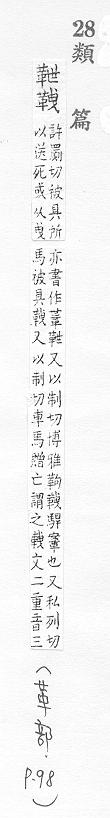 28
類
篇
䩛鞢
許罽切被具所
以送死或从曳
亦書作䩛又以制切博雅䩛鞢驛窜也又私列切
馬被具鞢又以制切車馬贈亡謂之鞢文二重音三
(革部.
P.98)